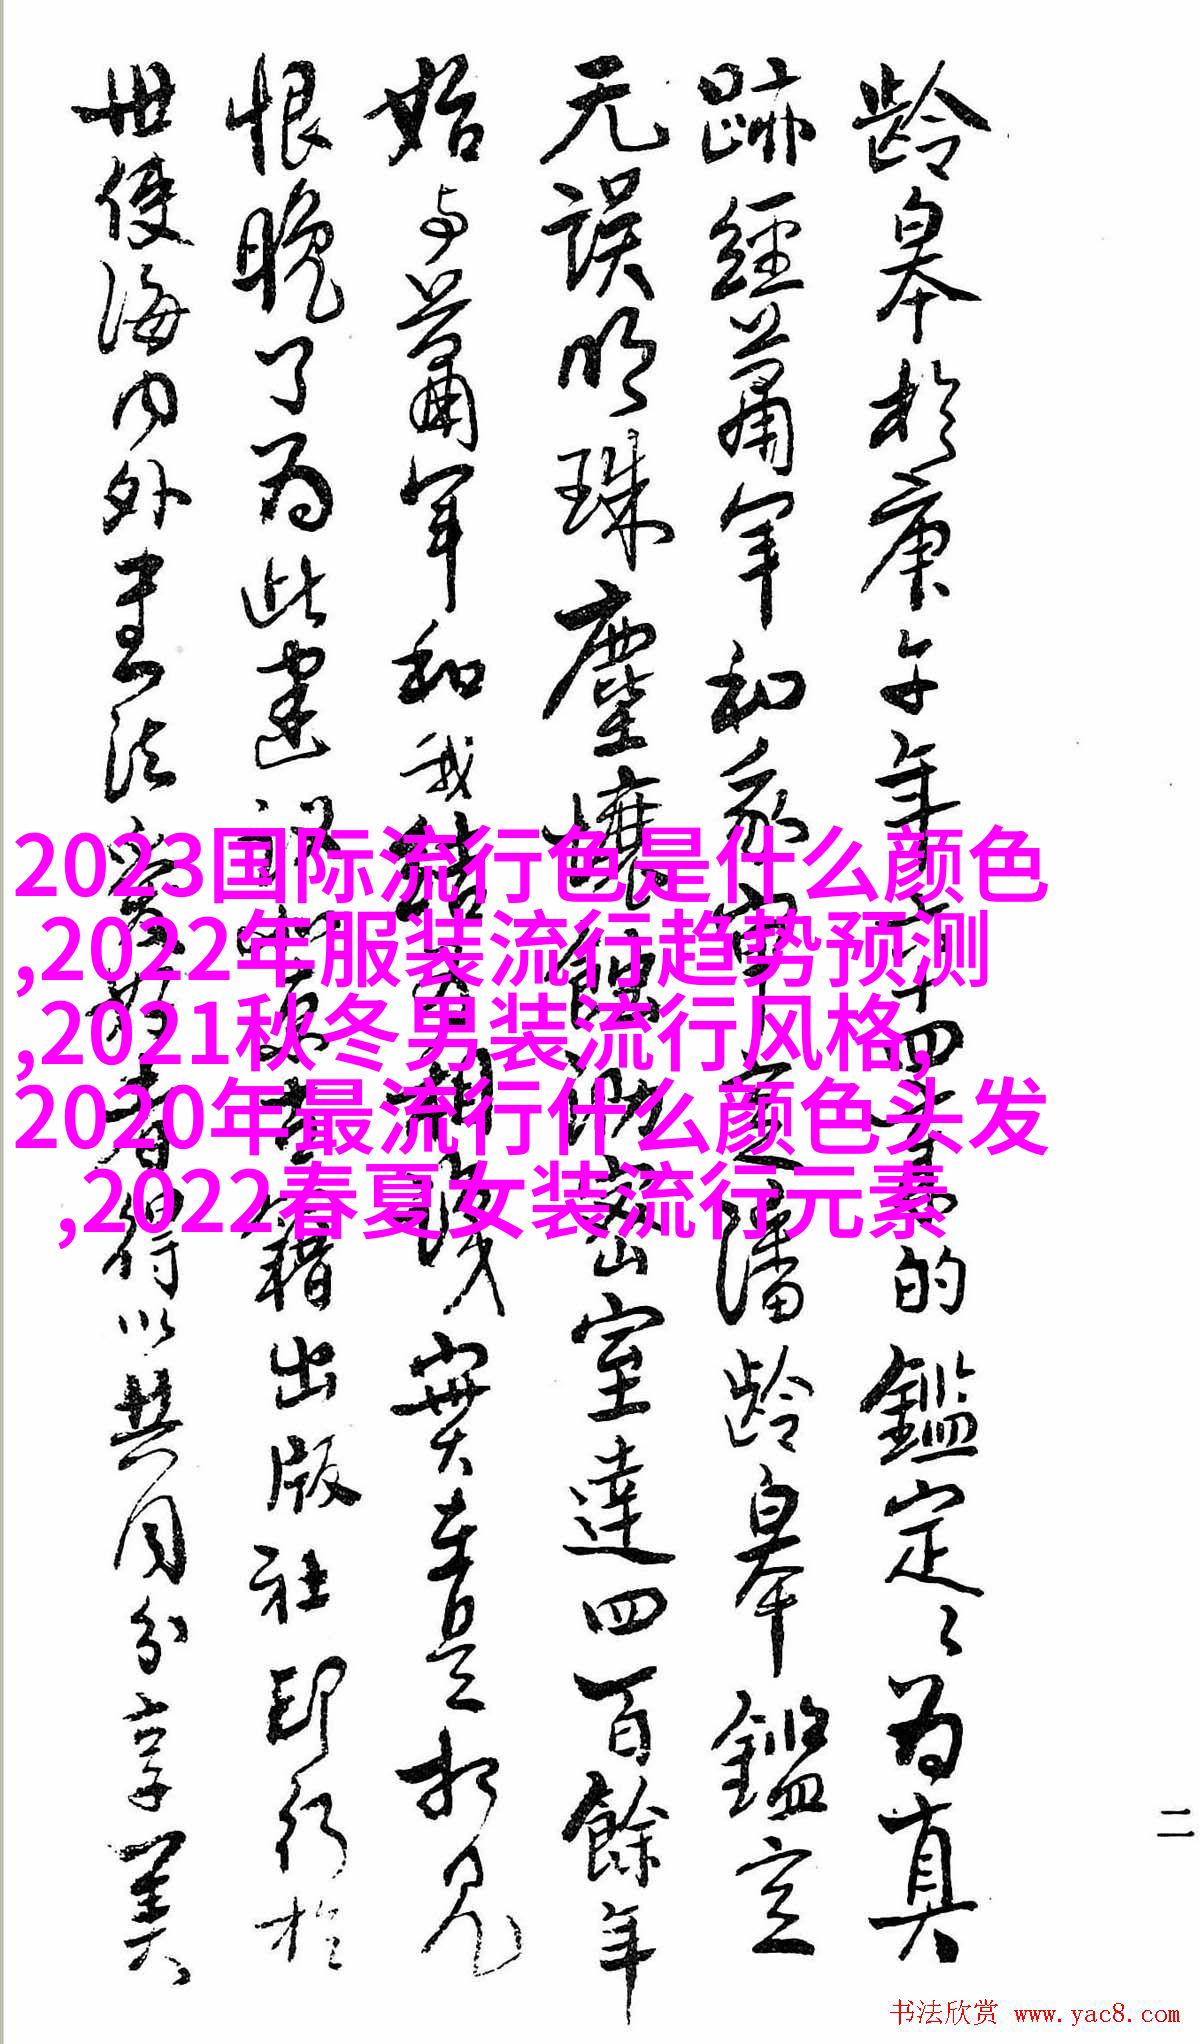 龄皋于庚午年
四
的鑑定定为真
跡經蕭军和
潘龄皋鑑定
无误明珠塵壤
室達四百餘年
始与蕭军和我
实在是相見
恨晚了为此建
籍出版社印行於
世使海内外書法爱好者得以共同分享美
2023国际流行色是什么颜色
,2022年服装流行趋势预测
,2021秋冬男装流行风格,
2020年最流行什么颜色头发
,2022春夏女装流行元素
二
书法欣赏 www.yac8.com